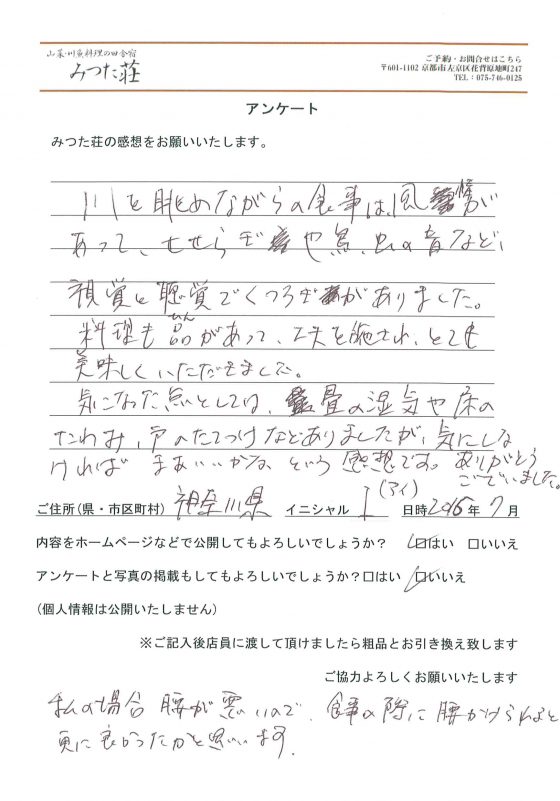 山菜・川魚料理の田舎宿
みつた荘
ご予約・お問合せはこちら
〒601-1102 京都市左京区花背原地町247
TEL：075-746-0125
アンケート
みつた荘の感想をお願いいたします。
川を眺めながらの食事は、風情が
あって、せせらぎや鳥、虫の音など、
視覚と聴覚でくつろぎがありました。
料理も品があって、工夫を施され、とても
ひん
美味しくいただきました。
気になった点としては、畳の湿気や床の
たわみ、戸のたてつけなどありましたが、気にしな
ければ まあいいかな、という感想です。ありがとう
ございました。
ご住所(県・市区町村) 神奈川県 イニシャル I (アイ) 日時2015年7月
内容をホームページなどで公開してもよろしいでしょうか？ ☑はい □いいえ
アンケートと写真の掲載もしてもよろしいでしょうか？□はい ☑いいえ
(個人情報は公開いたしません)
※ご記入後店員に渡して頂けましたら粗品とお引き換え致します
ご協力よろしくお願いいたします
私の場合 腰が悪いので、食事の際に腰かけられると
更に良かったかと思います.